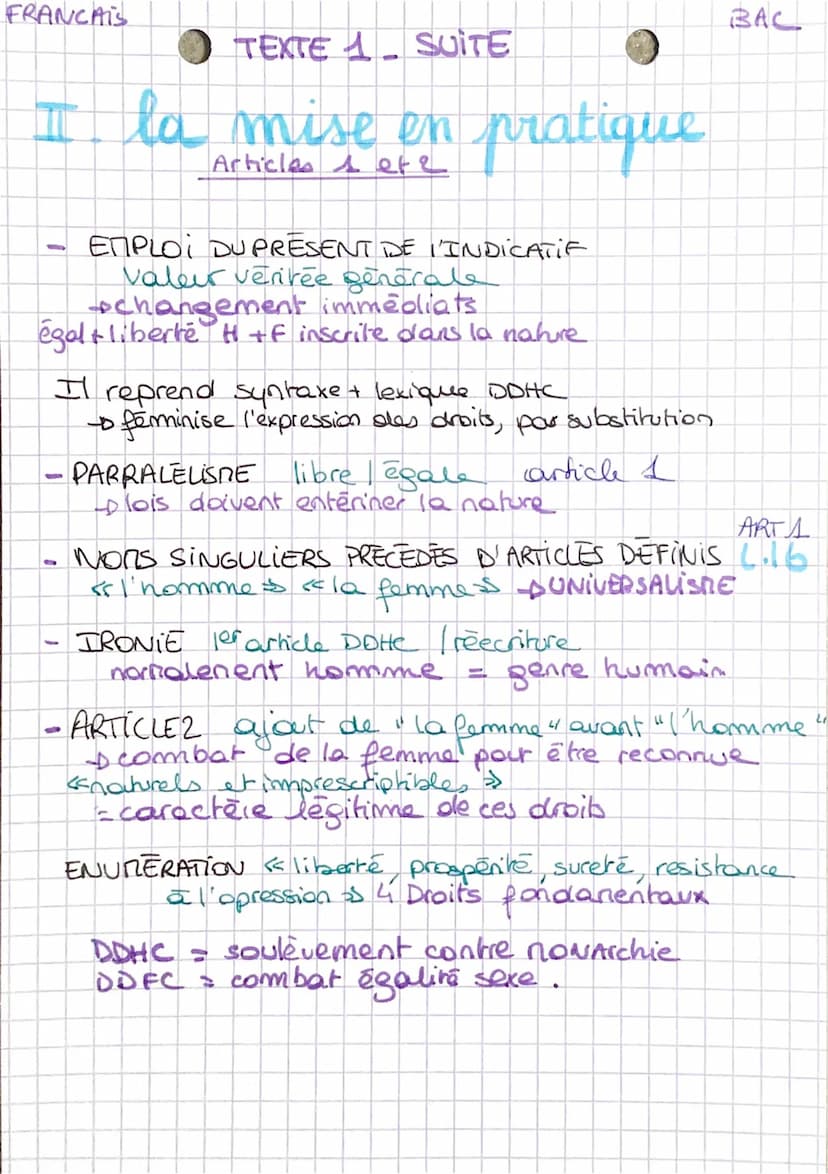 FRANCAIS
BAC
TEXTE 1 - SUITE
II. la mise en pratique
Articles 1 et 2
- EMPLOI DU PRÉSENT DE l'INDICATIF
valeur véritée générale
→ changement immédiats
égal + liberté H + F inscrite dans la nature
Il reprend syntaxe + lexique DDHC
→ féminise l'expression des droits, par substitution
- PARRALELISME libre / égale article 1
→ lois doivent entériner la nature
ART 1
- NOMS SINGULIERS PRÉCÉDÉS D'ARTICLES DÉFINIS L.16
« l'homme » « la femme » → UNIVERSALISME
- IRONIE 1er article DDHC / réecriture
normalement homme = genre humain
- ARTICLE 2 ajout de "la femme" avant "l'homme"
→ combat de la femme pour être reconnue
« naturels et imprescriptibles »
= caractère légitime de ces droits
ENUMÉRATION « liberté, prospérité, sureté, resistance
à l'opression » 4 Droits fondamentaux
DDHC = soulèvement contre monarchie
DDFC = combat égalité sexe.